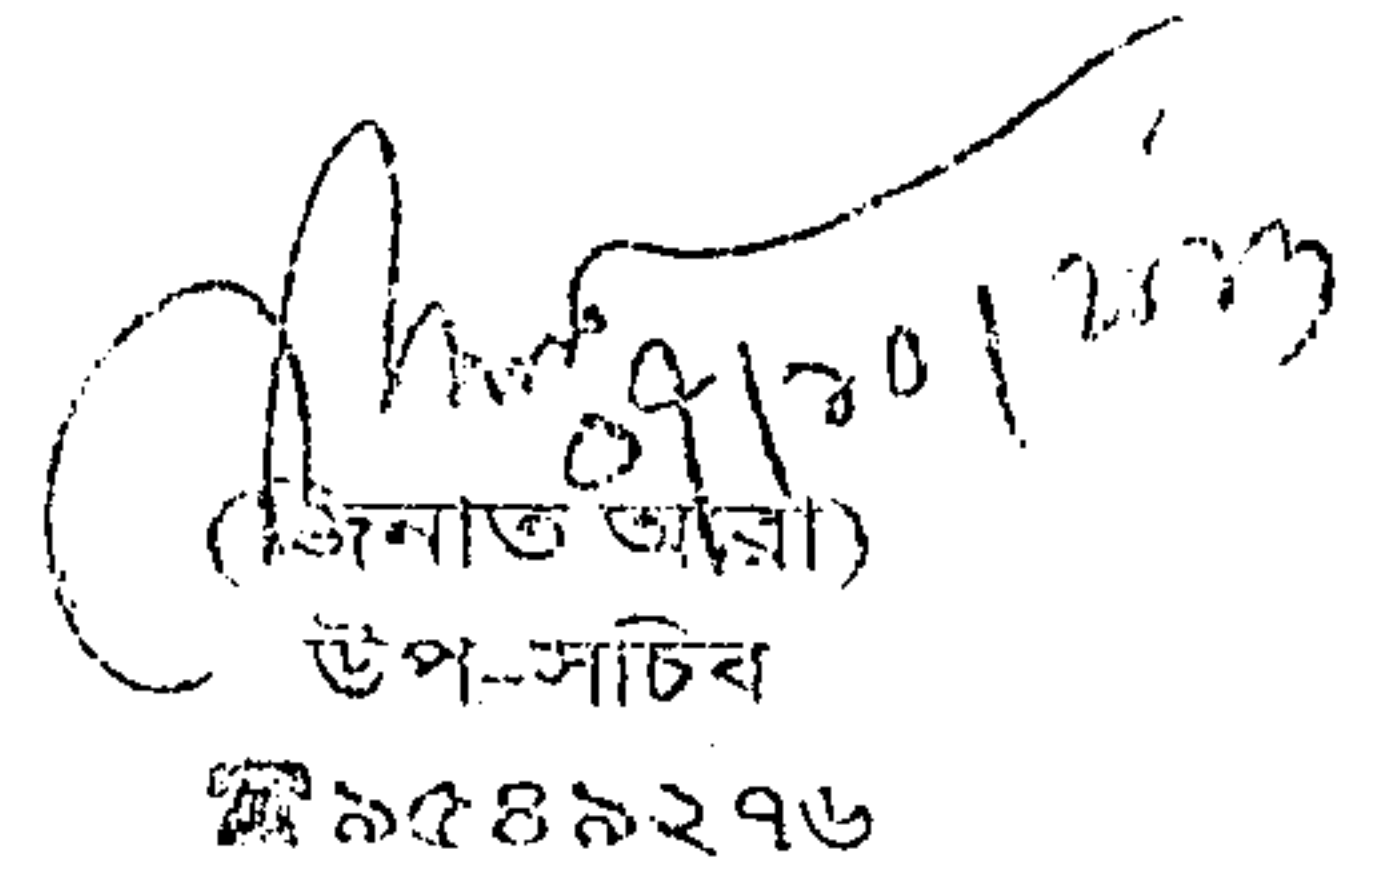 ০৭/১০/
(জিনাত আরা)
উপ-সচিব
☎৯৫৪৯২৭৬